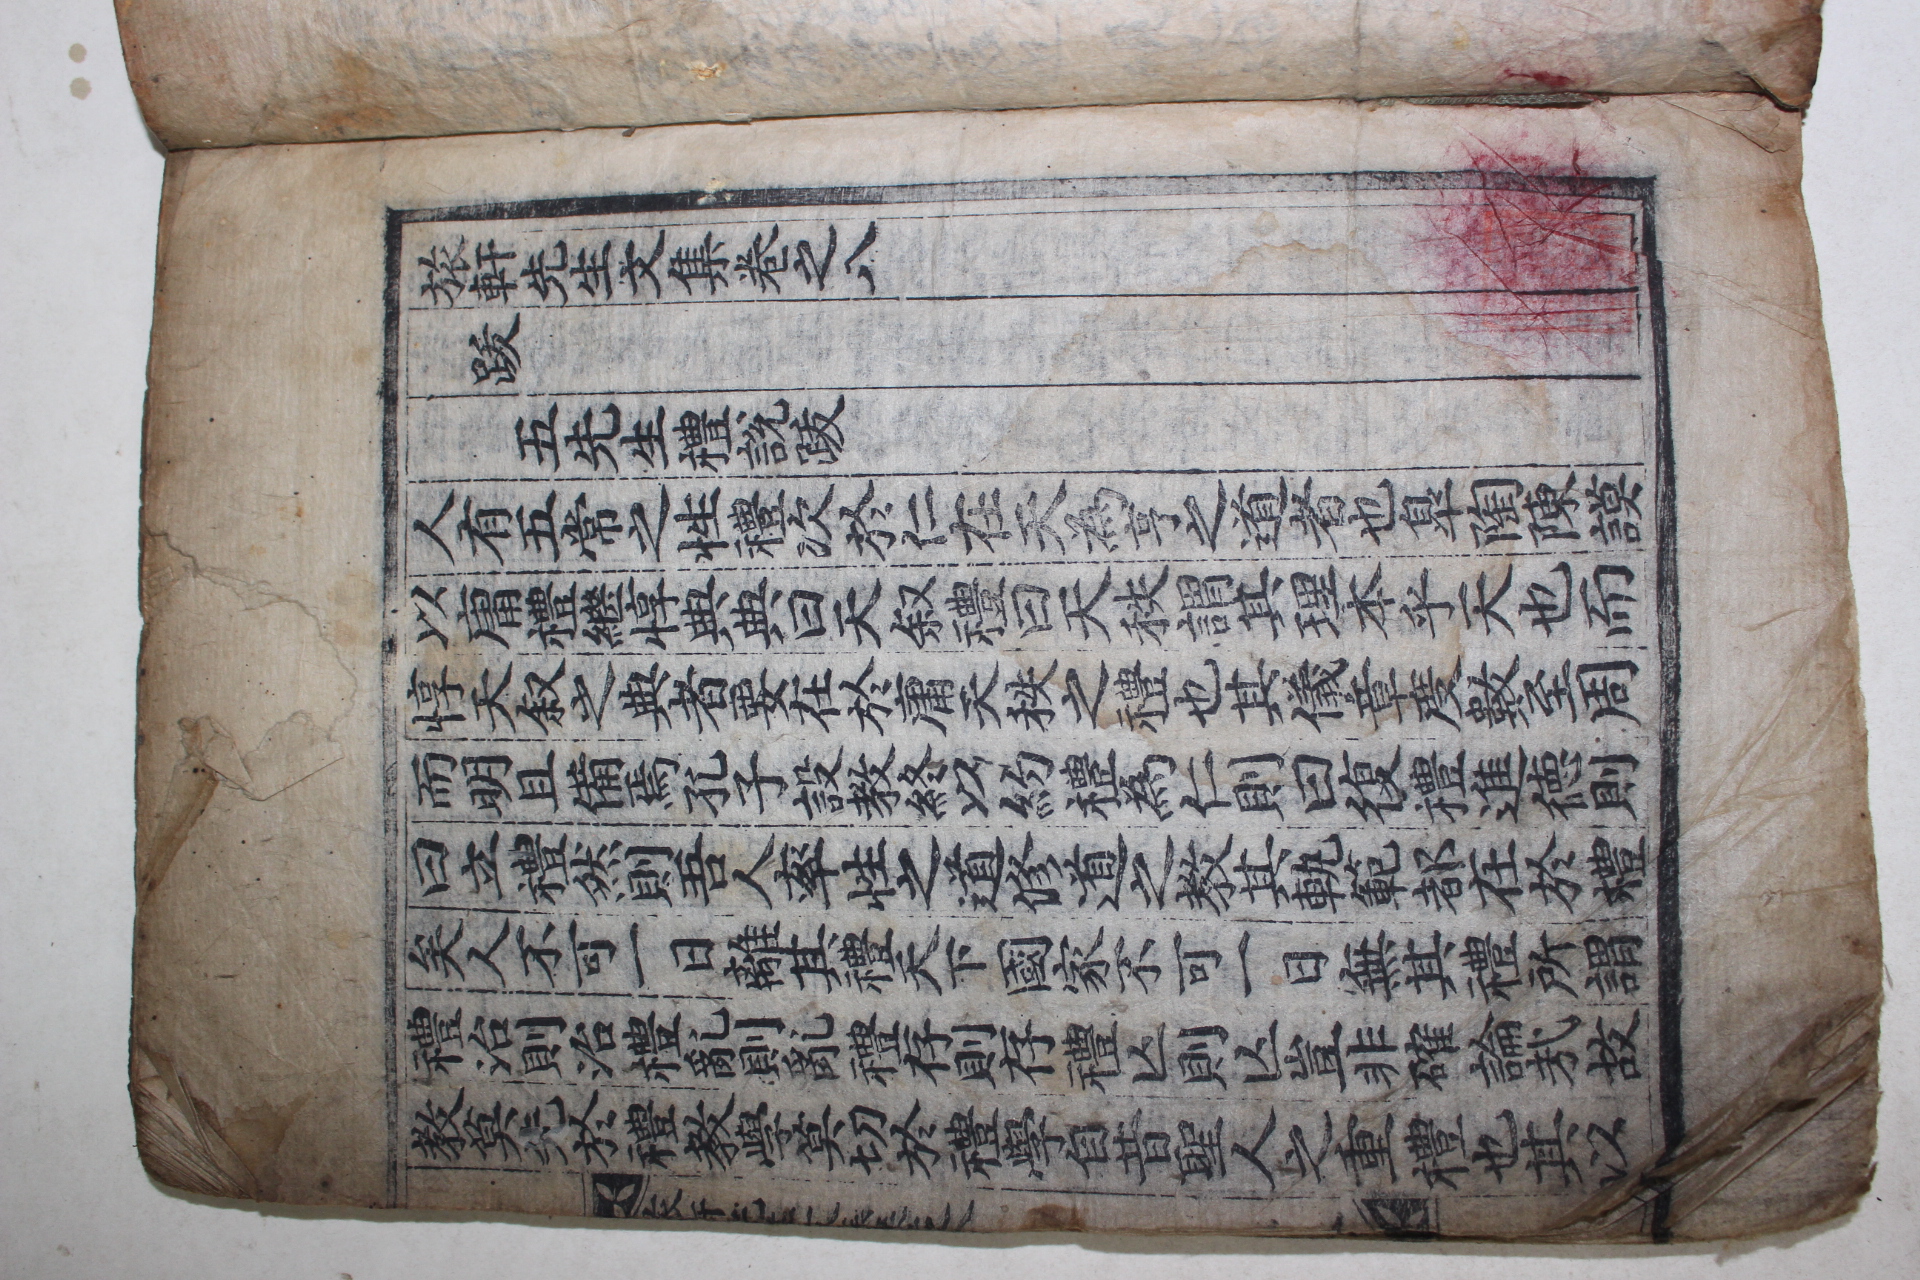 旅軒先生文集卷之八
跋
五先生禮說跋
人有五常之性禮次於仁在天為亨之道者也臯陶陳謨
以庸禮繼惇典典曰天叙禮曰天秩謂其理本乎天也而
惇天叙之典者要在於庸天秩之禮也其儀章度數至周
而明且備焉孔子設教終以約禮為仁則曰復禮進德則
曰立禮然則吾人率性之道修道之教其軌範都在於禮
矣人不可一日離其禮天下國家不可一日無其禮所謂
禮治則治禮亂則亂禮存則存禮亾則亾豈非確論㢤故
教莫先於禮教學莫切於禮學自昔聖人之重禮也其以
旅軒先生文集卷之八